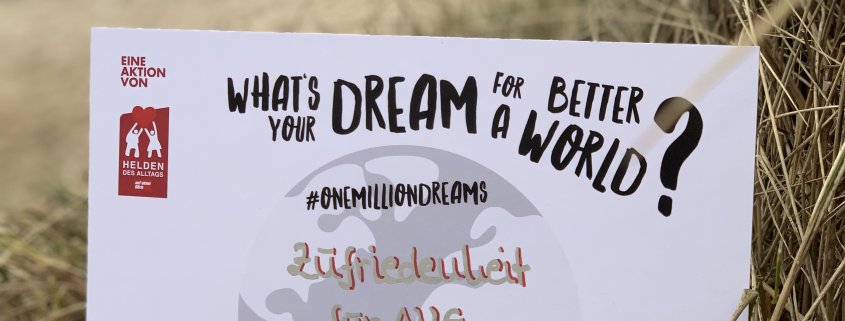 EINE
AKTION
VON
HELDEN
DES ALLTAGS
auf einen
Blick
WHAT'S YOUR DREAM FOR A BETTER WORLD?
#ONEMILLIONDREAMS
Zufriedenheit
für Alle